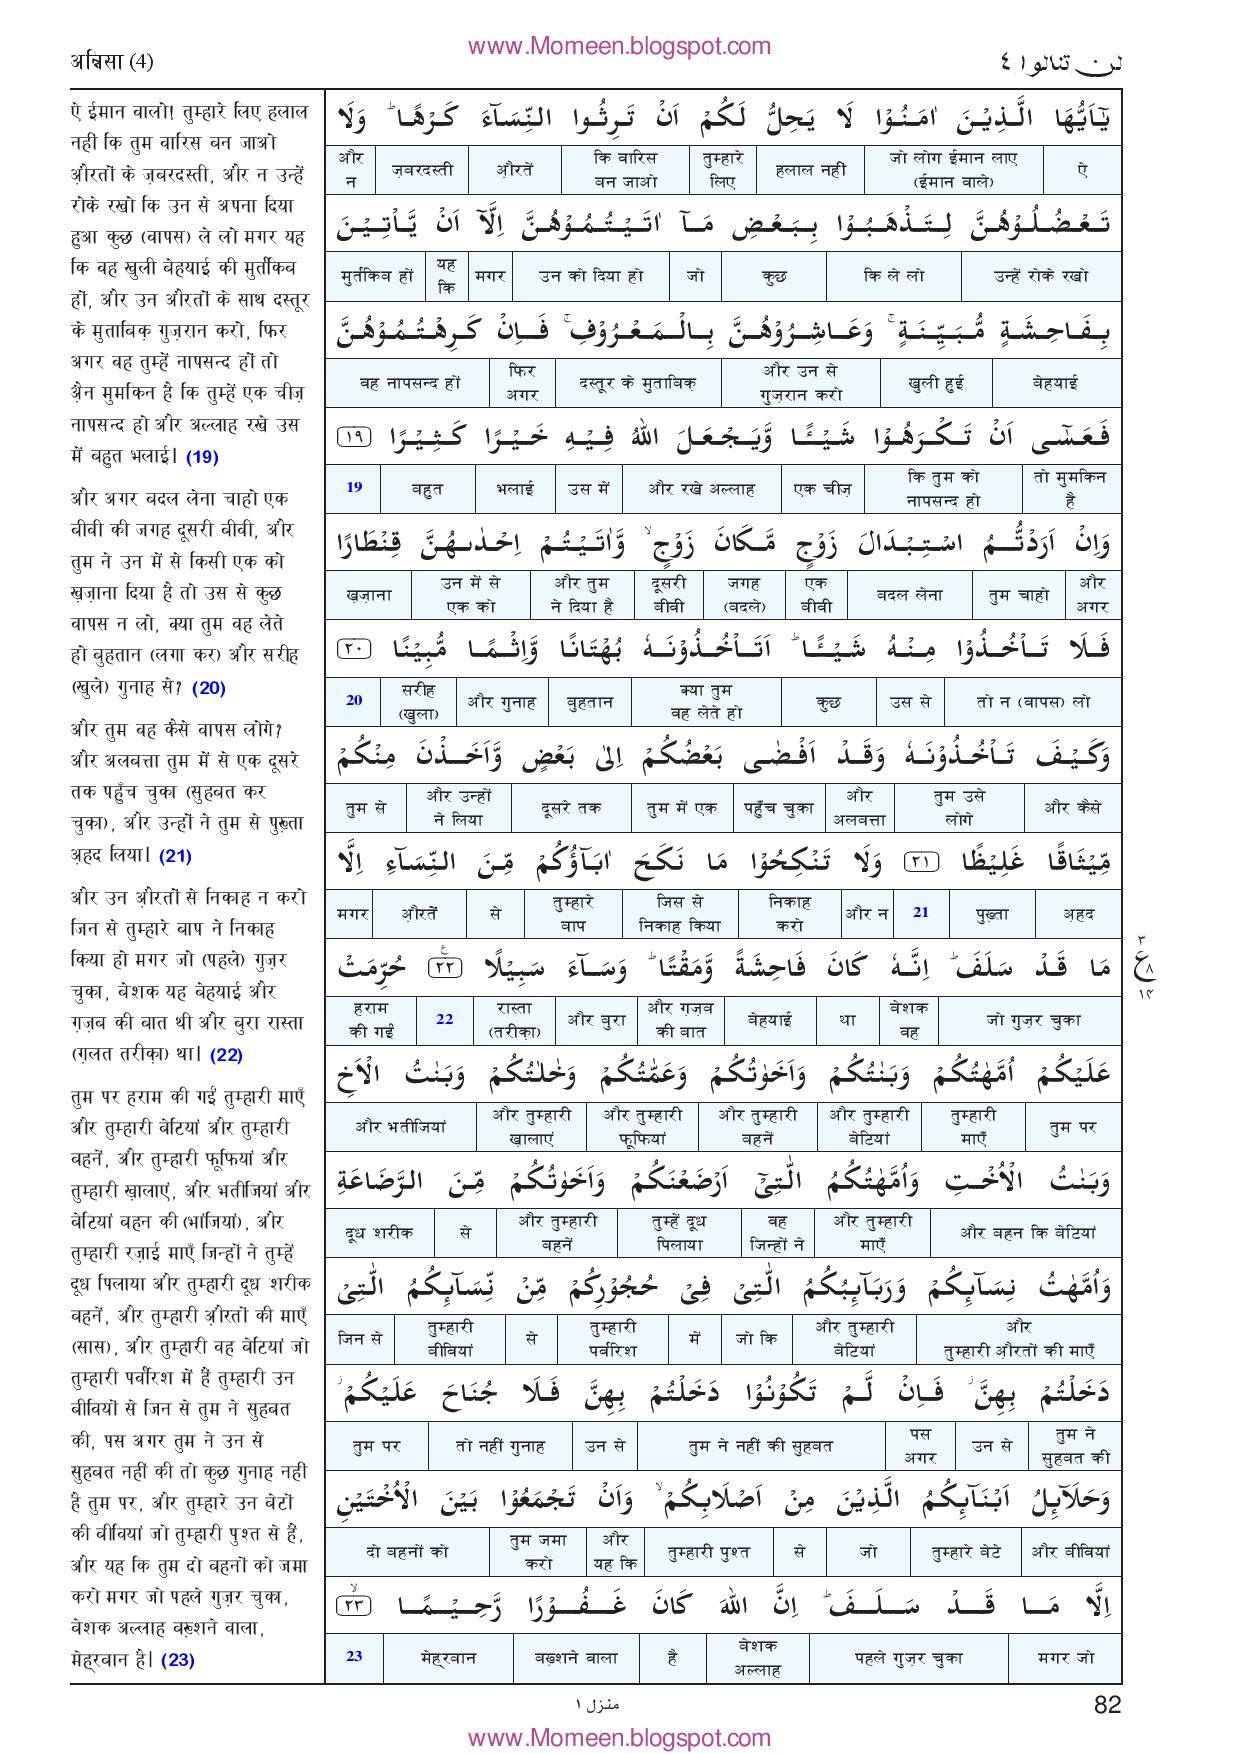 www.Momeen.blogspot.com
अन्निसा (4)
لن تنالوا ٤
ऐ ईमान वालो! तुम्हारे लिए हलाल
नहीं कि तुम वारिस बन जाओ
औ़रतों के ज़बरदस्ती, और न उन्हें
रोके रखो कि उन से अपना दिया
हुआ कुछ (वापस) ले लो मगर यह
कि वह खुली बेहयाई की मुर्तकिब
हों, और उन औरतों के साथ दस्तूर
के मुताबिक़ गुज़रान करो, फिर
अगर वह तुम्हें नापसन्द हों तो
अ़ैन मुमकिन है कि तुम्हें एक चीज़
नापसन्द हो और अल्लाह रखे उस
में बहुत भलाई। (19)
और अगर बदल लेना चाहो एक
बीवी की जगह दूसरी बीवी, और
तुम ने उन में से किसी एक को
ख़ज़ाना दिया है तो उस से कुछ
वापस न लो, क्या तुम वह लेते
हो बुहतान (लगा कर) और सरीह
(खुले) गुनाह से? (20)
और तुम वह कैसे वापस लोगे?
और अलबत्ता तुम में से एक दूसरे
तक पहुँच चुका (सुहबत कर
चुका), और उन्हों ने तुम से पुख़्ता
अ़हद लिया। (21)
और उन औ़रतों से निकाह न करो
जिन से तुम्हारे बाप ने निकाह
किया हो मगर जो (पहले) गुज़र
चुका, बेशक यह बेहयाई और
ग़ज़ब की बात थी और बुरा रास्ता
(ग़लत तरीक़ा) था। (22)
तुम पर हराम की गईं तुम्हारी माएँ
और तुम्हारी बेटियां और तुम्हारी
बहनें, और तुम्हारी फूफियां और
तुम्हारी ख़ालाएं, और भतीजियां और
बेटियां बहन की (भांजियां), और
तुम्हारी रज़ाई माएँ जिन्हों ने तुम्हें
दूध पिलाया और तुम्हारी दूध शरीक
बहनें, और तुम्हारी औ़रतों की माएँ
(सास), और तुम्हारी वह बेटियां जो
तुम्हारी पर्वरिश में हैं तुम्हारी उन
बीवियों से जिन से तुम ने सुहबत
की, पस अगर तुम ने उन से
सुहबत नहीं की तो कुछ गुनाह नहीं
है तुम पर, और तुम्हारे उन बेटों
की बीवियां जो तुम्हारी पुश्त से हैं,
और यह कि तुम दो बहनों को जमा
करो मगर जो पहले गुज़र चुका,
बेशक अल्लाह बख़्शने वाला,
मेह्रबान है। (23)
يٰٓاَيُّهَا الَّذِيْنَ اٰمَنُوْا لَا يَحِلُّ لَكُمْ اَنْ تَرِثُوا النِّسَآءَ كَرْهًا ؕ وَلَا
ऐ | जो लोग ईमान लाए (ईमान वाले) | हलाल नहीं | तुम्हारे लिए | कि वारिस बन जाओ | औ़रतें | ज़बरदस्ती | और न
تَعْضُلُوْهُنَّ لِتَذْهَبُوْا بِبَعْضِ مَآ اٰتَيْتُمُوْهُنَّ اِلَّآ اَنْ يَّاْتِيْنَ
उन्हें रोके रखो | कि ले लो | कुछ | जो | उन को दिया हो | मगर | यह कि | मुर्तकिब हों
بِفَاحِشَةٍ مُّبَيِّنَةٍ ۚ وَعَاشِرُوْهُنَّ بِالْمَعْرُوْفِ ۚ فَاِنْ كَرِهْتُمُوْهُنَّ
बेहयाई | खुली हुई | और उन से गुज़रान करो | दस्तूर के मुताबिक़ | फिर अगर | वह नापसन्द हों
فَعَسٰٓى اَنْ تَكْرَهُوْا شَيْـًٔا وَّيَجْعَلَ اللّٰهُ فِيْهِ خَيْرًا كَثِيْرًا ١٩
तो मुमकिन है | कि तुम को नापसन्द हो | एक चीज़ | और रखे अल्लाह | उस में | भलाई | बहुत | 19
وَاِنْ اَرَدْتُّمُ اسْتِبْدَالَ زَوْجٍ مَّكَانَ زَوْجٍ ۙ وَّاٰتَيْتُمْ اِحْدٰىهُنَّ قِنْطَارًا
और अगर | तुम चाहो | बदल लेना | एक बीवी | जगह (बदले) | दूसरी बीवी | और तुम ने दिया है | उन में से एक को | ख़ज़ाना
فَلَا تَاْخُذُوْا مِنْهُ شَيْـًٔا ؕ اَتَاْخُذُوْنَهٗ بُهْتَانًا وَّاِثْمًا مُّبِيْنًا ٢٠
तो न (वापस) लो | उस से | कुछ | क्या तुम वह लेते हो | बुहतान | और गुनाह | सरीह (खुला) | 20
وَكَيْفَ تَاْخُذُوْنَهٗ وَقَدْ اَفْضٰى بَعْضُكُمْ اِلٰى بَعْضٍ وَّاَخَذْنَ مِنْكُمْ
और कैसे | तुम उसे लोगे | और अलबत्ता | पहुँच चुका | तुम में एक | दूसरे तक | और उन्हों ने लिया | तुम से
مِّيْثَاقًا غَلِيْظًا ٢١ وَلَا تَنْكِحُوْا مَا نَكَحَ اٰبَآؤُكُمْ مِّنَ النِّسَآءِ اِلَّا
अ़हद | पुख़्ता | 21 | और न | निकाह करो | जिस से निकाह किया | तुम्हारे बाप | से | औ़रतें | मगर
مَا قَدْ سَلَفَ ؕ اِنَّهٗ كَانَ فَاحِشَةً وَّمَقْتًا ؕ وَسَآءَ سَبِيْلًا ٢٢ حُرِّمَتْ
जो गुज़र चुका | बेशक वह | था | बेहयाई | और ग़ज़ब की बात | और बुरा | रास्ता (तरीक़ा) | 22 | हराम की गईं
٣
ع ٨
١٤
عَلَيْكُمْ اُمَّهٰتُكُمْ وَبَنٰتُكُمْ وَاَخَوٰتُكُمْ وَعَمّٰتُكُمْ وَخٰلٰتُكُمْ وَبَنٰتُ الْاَخِ
तुम पर | तुम्हारी माएँ | और तुम्हारी बेटियां | और तुम्हारी बहनें | और तुम्हारी फूफियां | और तुम्हारी ख़ालाएं | और भतीजियां
وَبَنٰتُ الْاُخْتِ وَاُمَّهٰتُكُمُ الّٰتِيْٓ اَرْضَعْنَكُمْ وَاَخَوٰتُكُمْ مِّنَ الرَّضَاعَةِ
और बहन कि बेटियां | और तुम्हारी माएँ | वह जिन्हों ने | तुम्हें दूध पिलाया | और तुम्हारी बहनें | से | दूध शरीक
وَاُمَّهٰتُ نِسَآئِكُمْ وَرَبَآئِبُكُمُ الّٰتِيْ فِيْ حُجُوْرِكُمْ مِّنْ نِّسَآئِكُمُ الّٰتِيْ
और तुम्हारी औ़रतों की माएँ | और तुम्हारी बेटियां | जो कि | में | तुम्हारी पर्वरिश | से | तुम्हारी बीवियां | जिन से
دَخَلْتُمْ بِهِنَّ ۫ فَاِنْ لَّمْ تَكُوْنُوْا دَخَلْتُمْ بِهِنَّ فَلَا جُنَاحَ عَلَيْكُمْ ۫
तुम ने सुहबत की | उन से | पस अगर | तुम ने नहीं की सुहबत | उन से | तो नहीं गुनाह | तुम पर
وَحَلَآئِلُ اَبْنَآئِكُمُ الَّذِيْنَ مِنْ اَصْلَابِكُمْ ۙ وَاَنْ تَجْمَعُوْا بَيْنَ الْاُخْتَيْنِ
और बीवियां | तुम्हारे बेटे | जो | से | तुम्हारी पुश्त | और यह कि | तुम जमा करो | दो बहनों को
اِلَّا مَا قَدْ سَلَفَ ؕ اِنَّ اللّٰهَ كَانَ غَفُوْرًا رَّحِيْمًا ٢٣
मगर जो | पहले गुज़र चुका | बेशक अल्लाह | है | बख़्शने वाला | मेह्रबान | 23
منزل ١
82
www.Momeen.blogspot.com